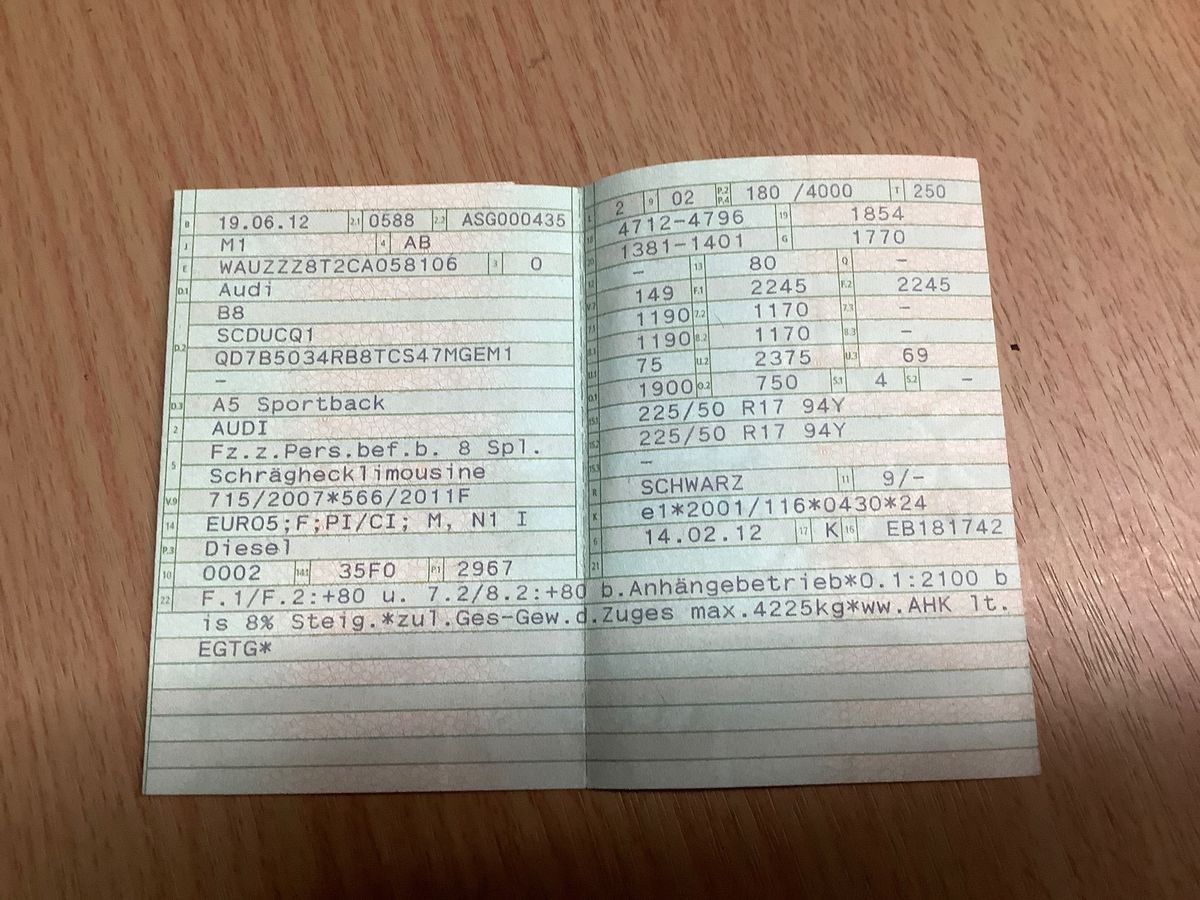 B 19.06.12 2.1 0588 2.2 ASG000435
J M1 4 AB
E WAUZZZ8T2CA058106 3 0
D.1 Audi
B8
D.2 SCDUCQ1
QD7B5034RB8TCS47MGEM1
–
D.3 A5 Sportback
2 AUDI
5 Fz.z.Pers.bef.b. 8 Spl.
Schräghecklimousine
V.9 715/2007*566/2011F
14 EURO5;F;PI/CI; M, N1 I
P.3 Diesel
10 0002 14.1 35F0 P.1 2967
L 2 9 02 P.2 P.4 180 /4000 T 250
18 4712-4796 19 1854
20 1381-1401 G 1770
12 – 13 80 Q –
V.7 149 F.1 2245 F.2 2245
7.1 1190 7.2 1170 7.3 –
8.1 1190 8.2 1170 8.3 –
U.1 75 U.2 2375 U.3 69
O.1 1900 O.2 750 S.1 4 S.2 –
15.1 225/50 R17 94Y
15.2 225/50 R17 94Y
15.3 –
R SCHWARZ 11 9/-
K e1*2001/116*0430*24
6 14.02.12 17 K 16 EB181742
21
22 F.1/F.2:+80 u. 7.2/8.2:+80 b.Anhängebetrieb*O.1:2100 b
is 8% Steig.*zul.Ges-Gew.d.Zuges max.4225kg*ww.AHK lt.
EGTG*